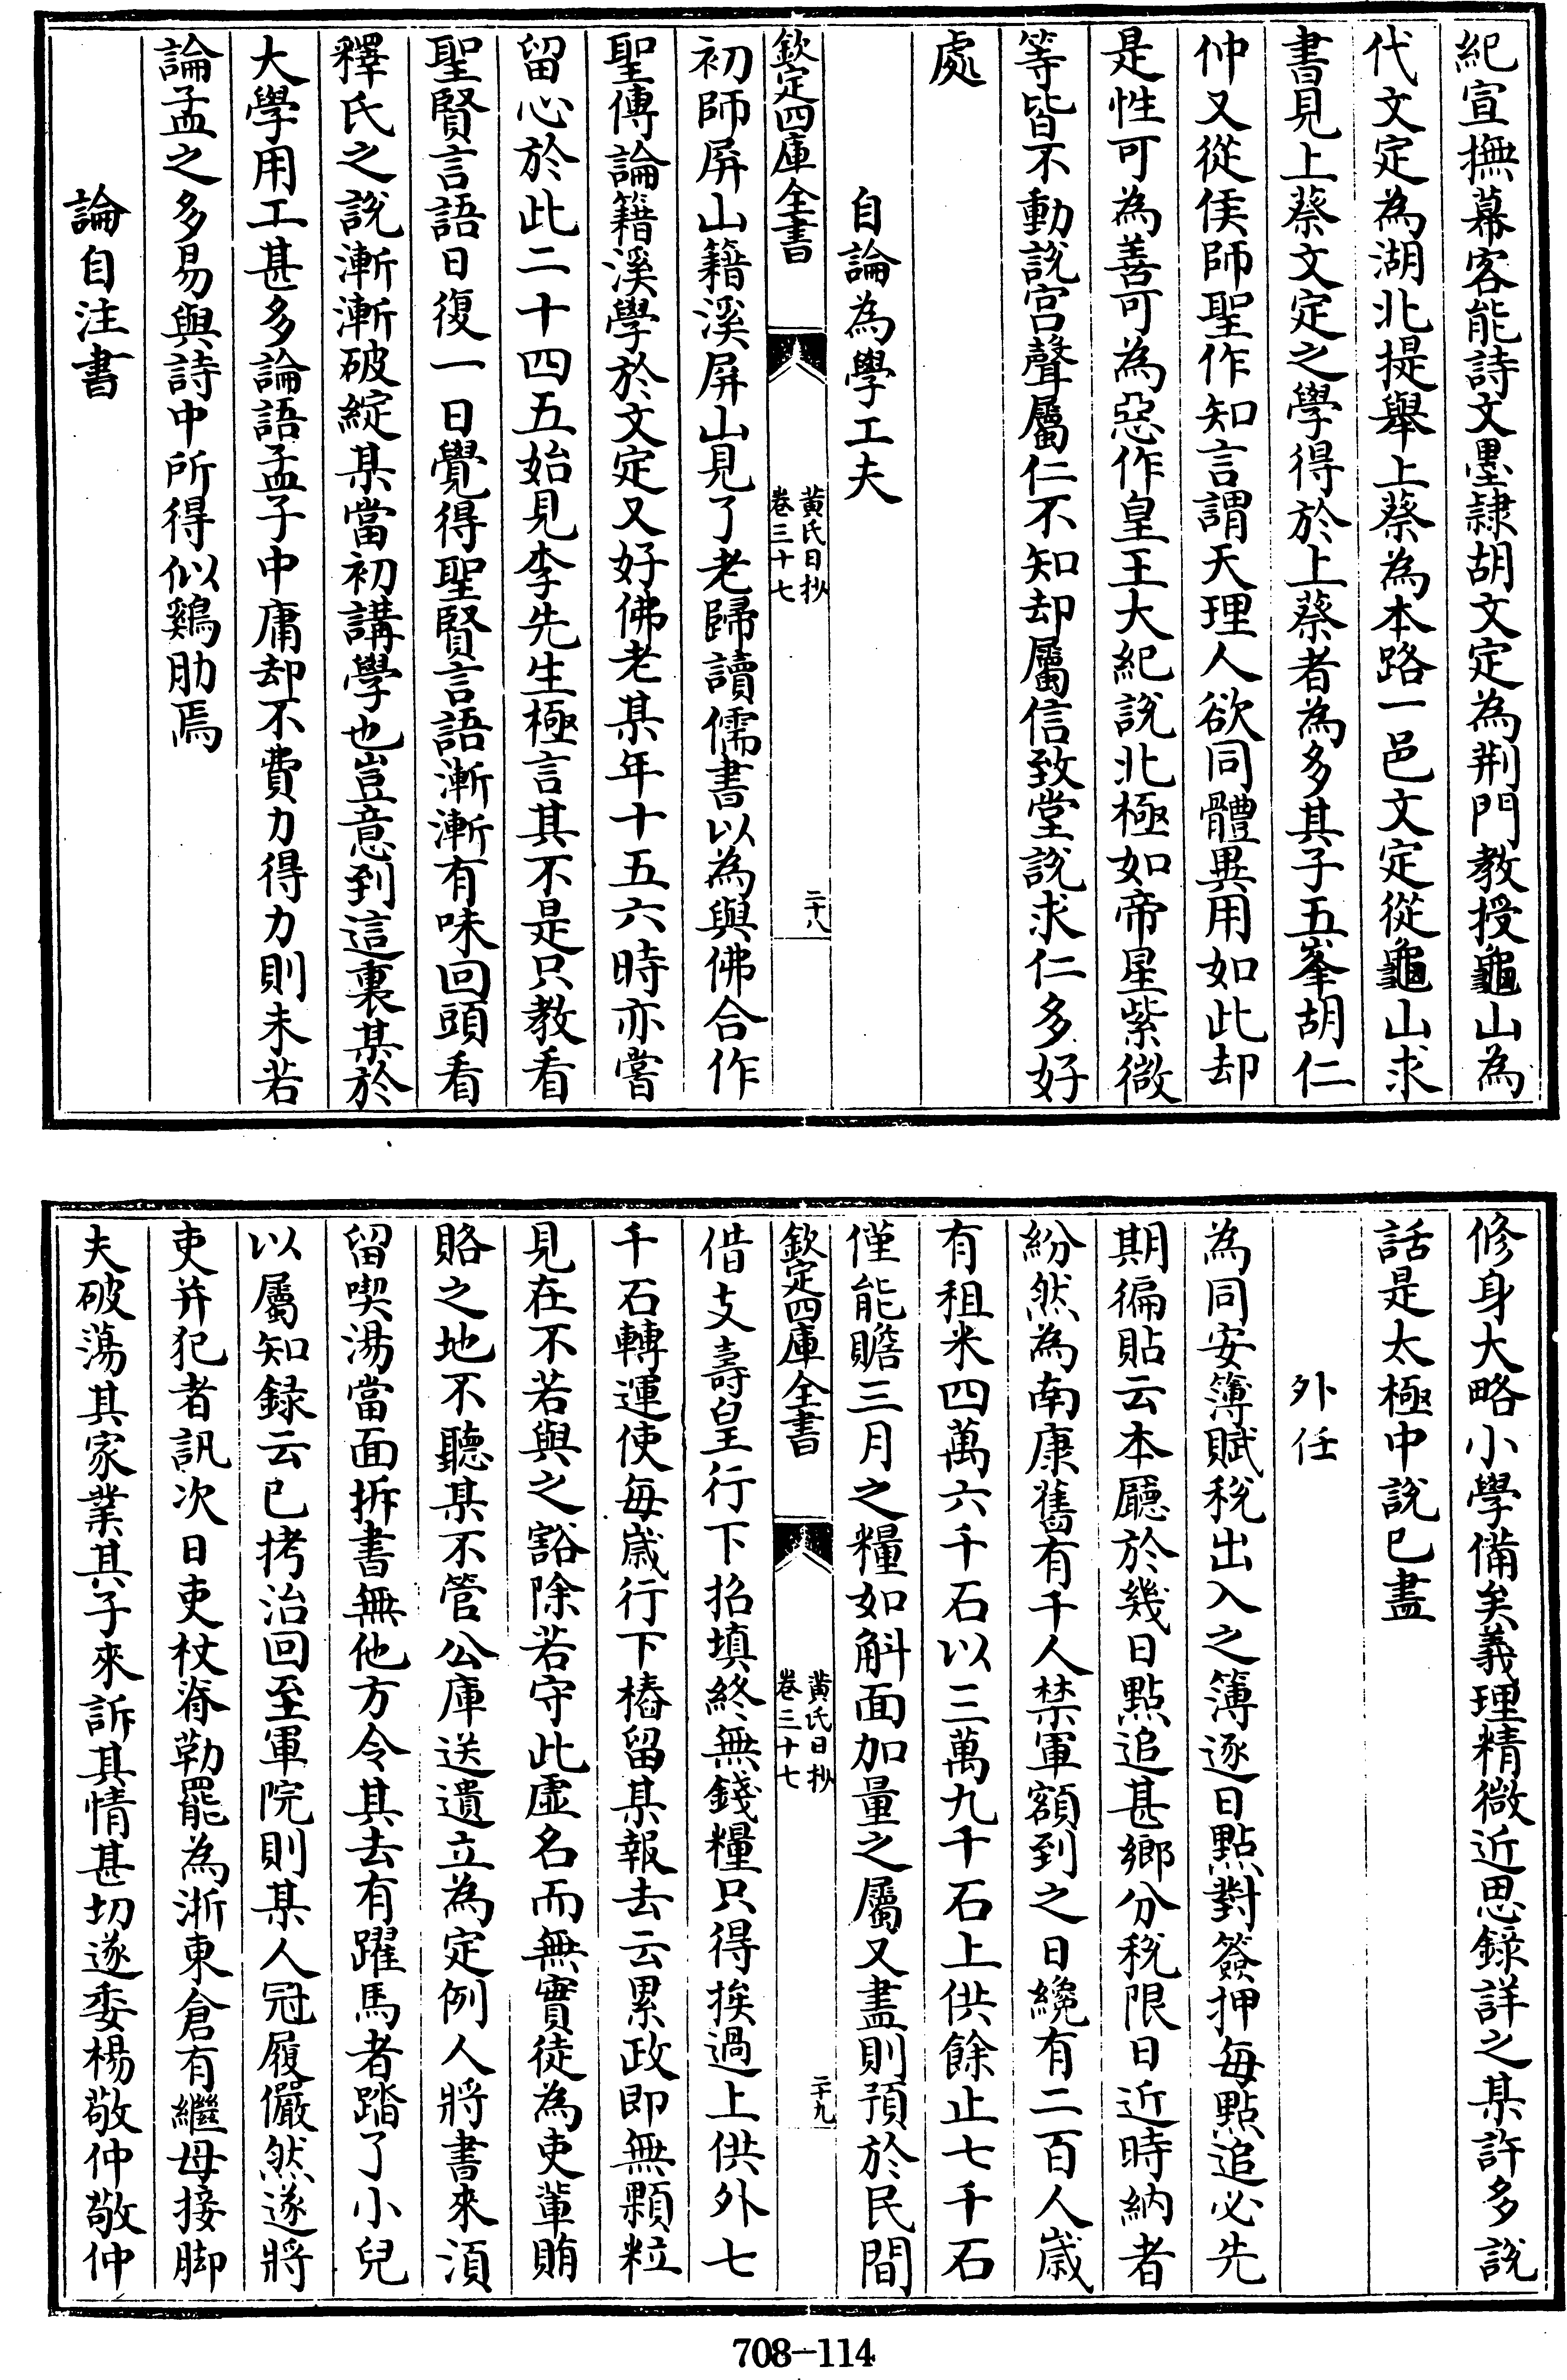 紀宣撫幕客能詩文墨隷胡文定為荆門教授龜山為
代文定為湖北提舉上蔡為本路一邑文定從龜山求
書見上蔡文定之學得於上蔡者為多其子五峯胡仁
仲又從侯師聖作知言謂天理人欲同體異用如此却
是性可為善可為惡作皇王大紀說北極如帝星紫微
等皆不動說宫聲屬仁不知却屬信致堂說求仁多好
處
自論為學工夫
欽定四庫全書
黄氏日抄
卷三十七
二十八
初師屏山籍溪屏山見了老歸讀儒書以為與佛合作
聖傳論籍溪學於文定又好佛老某年十五六時亦嘗
留心於此二十四五始見李先生極言其不是只教看
聖賢言語日復一日覺得聖賢言語漸漸有味回頭看
釋氏之說漸漸破綻某當初講學也豈意到這裏某於
大學用工甚多論語孟子中庸却不費力得力則未若
論孟之多易與詩中所得似鷄肋焉
論自注書
修身大略小學備矣義理精微近思録詳之某許多說
話是太極中說已盡
外任
為同安簿賦稅出入之簿逐日點對簽押每點追必先
期徧貼云本廳於幾日點追甚鄉分稅限日近時納者
紛然為南康舊有千人禁軍額到之日纔有二百人嵗
有租米四萬六千石以三萬九千石上供餘止七千石
僅能贍三月之糧如斛面加量之屬又盡則預於民間
欽定四庫全書
黄氏日抄
卷三十七
二十九
借支壽皇行下招填終無錢糧只得挨過上供外七
千石轉運使每嵗行下樁留某報去云累政即無顆粒
見在不若與之豁除若守此虚名而無實徒為吏軰賄
賂之地不聽某不管公庫送遺立為定例人將書來湏
留喫湯當面拆書無他方令其去有躍馬者踏了小兒
以屬知録云已拷治回至軍院則某人冠履儼然遂將
吏并犯者訊次日吏杖脊勒罷為浙東倉有繼母接脚
夫破蕩其家業其子來訴其情甚切遂委楊敬仲敬仲
708-114